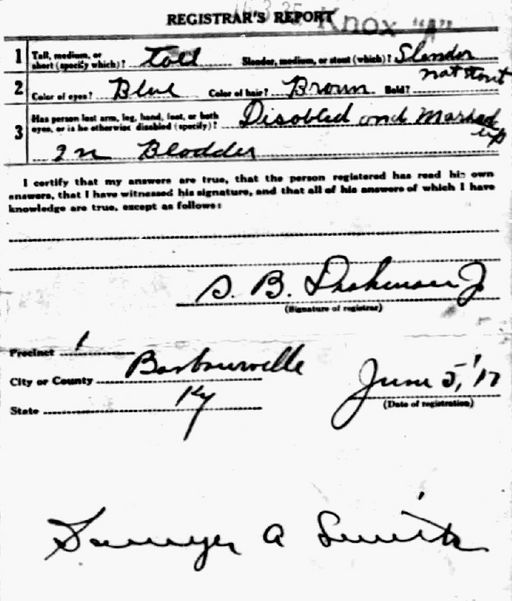 Knox "A"
REGISTRAR'S REPORT
1 Tall, medium, or short (specify which)? Tall Slender, medium, or stout (which)? Slender
not stout
2 Color of eyes? Blue Color of hair? Brown Bald?
3 Has person lost arm, leg, hand, foot, or both eyes, or is he otherwise disabled (specify)? Disabled and Mashed up
In Bladder
I certify that my answers are true, that the person registered has read his own
answers, that I have witnessed his signature, and that all of his answers of which I have
knowledge are true, except as follows:
S. B.
(Signature of registrar)
Precinct 1
City or County Barbourville
State Ky
June 5, '17
(Date of registration)
Sawyer A Smith